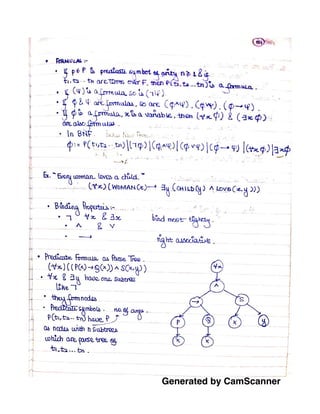 • FORMULAS :-
• if p ∈ P is predicate symbol of arity n ≥ 1 & if
t1, t2 .. tn are terms over F, then P(t1, t2 ... tn) is a formula.
• if (φ) is a formula, so is (¬φ).
• if φ & ψ are formulas, so are (φ∧ψ), (φ∨ψ), (φ→ψ).
• if φ is a formula, x is a variable, then (∀x φ) & (∃x φ)
are also formulas
• In BNF
φ ::= P(t1, t2 .. tn) | (¬φ) | (φ∧ψ) | (φ∨ψ) | (φ→ψ) | (∀xφ) | ∃xφ
Ex. "Every woman loves a child."
(∀x) (WOMAN(x) → ∃y (CHILD(y) ∧ LOVES(x,y)))
• Binding Properties :-
• ¬ ∀x & ∃x bind most tightly.
• ∧ & ∨
• → right associative.
• Predicate Formulas as Parse Tree.
(∀x) ((P(x) → Q(x)) ∧ S(x,y))
• ∀x & ∃y have one subtree
like ¬
• they form nodes
• Predicate symbols no. of args.
P(t1, t2 .. tn) have P
as nodes with n subtrees
which are parse tree of
t1, t2 ... tn.
∀x
∧
→ S
P Q x y
x x
Generated by CamScanner